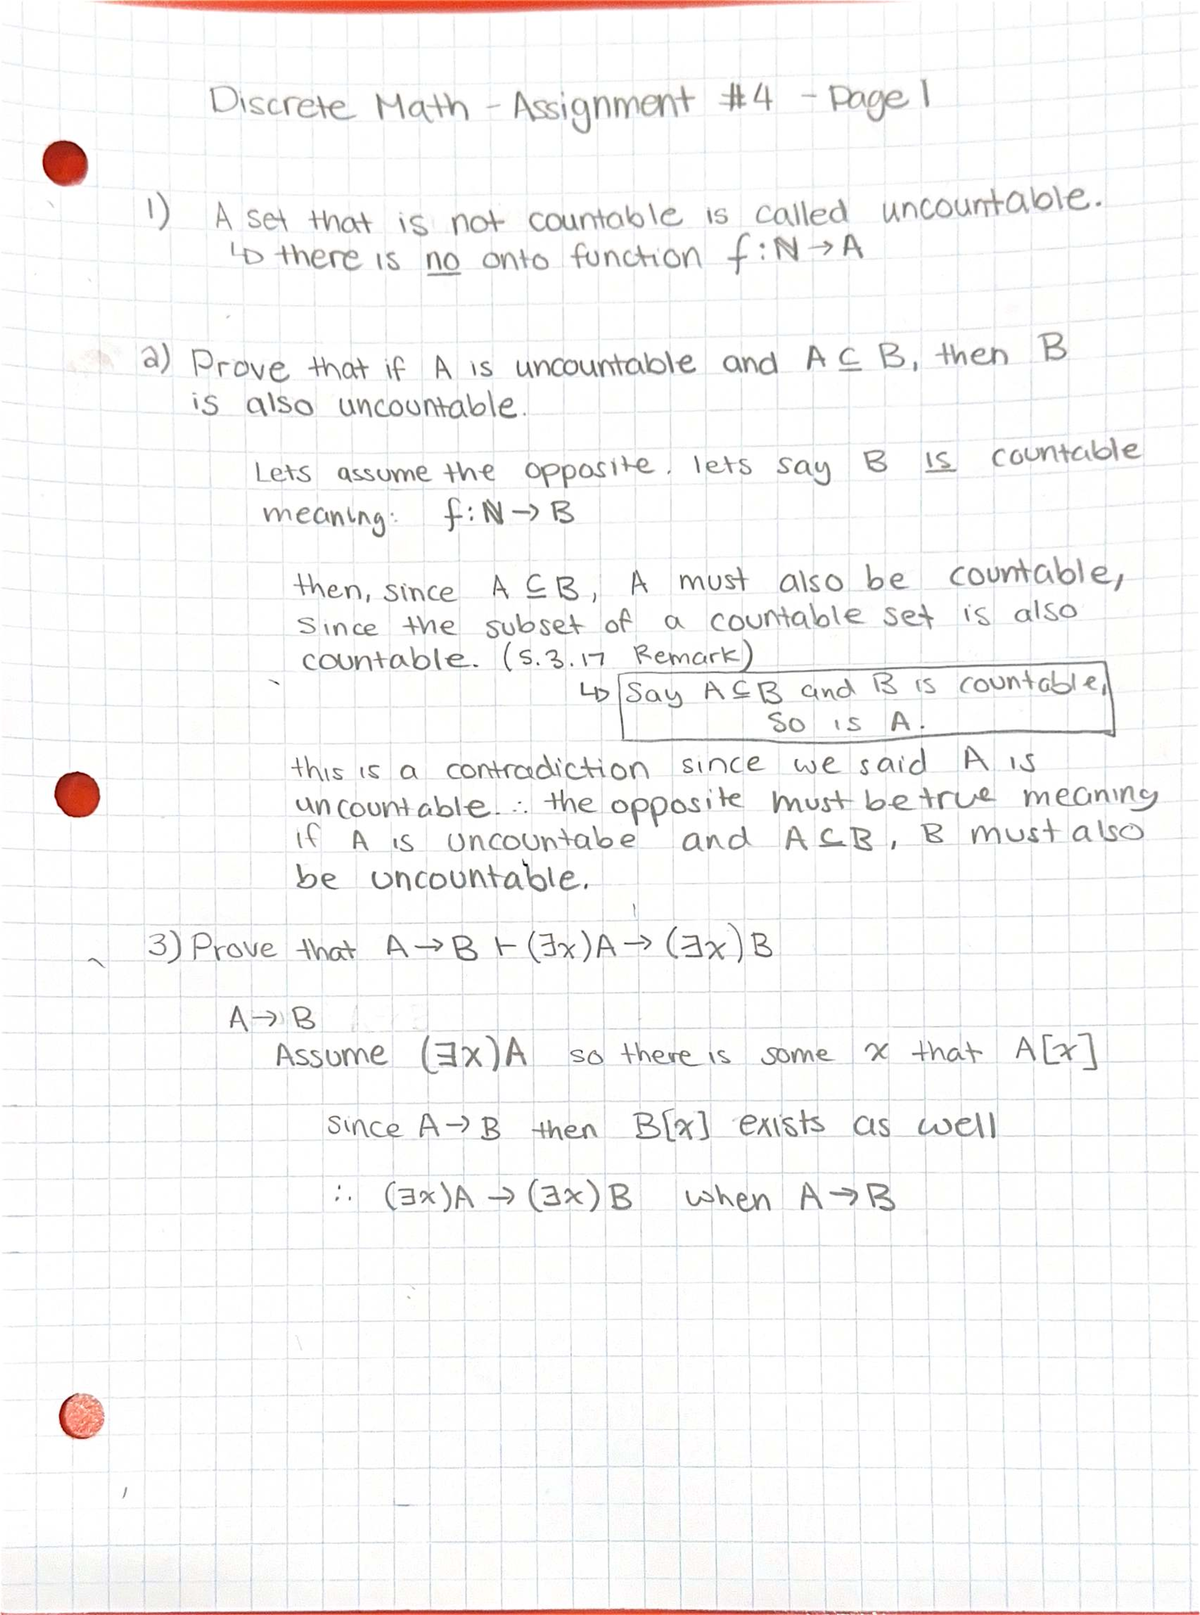 Discrete Math - Assignment #4 - Page 1
1) A set that is not countable is called uncountable.
↳ there is no onto function f:ℕ→A
2) Prove that if A is uncountable and A ⊆ B, then B
is also uncountable.
Lets assume the opposite. lets say B IS countable
meaning: f:ℕ→B
then, since A ⊆ B, A must also be countable,
since the subset of a countable set is also
countable. (5.3.17 Remark)
↳ Say A⊆B and B is countable,
So is A.
this is a contradiction since we said A is
uncountable. ∴ the opposite must be true meaning
if A is uncountabe and A⊆B, B must also
be uncountable.
3) Prove that A→B ⊢ (∃x)A→(∃x)B
A→B
Assume (∃x)A so there is some x that A[x]
since A→B then B[x] exists as well
∴ (∃x)A → (∃x)B when A→B